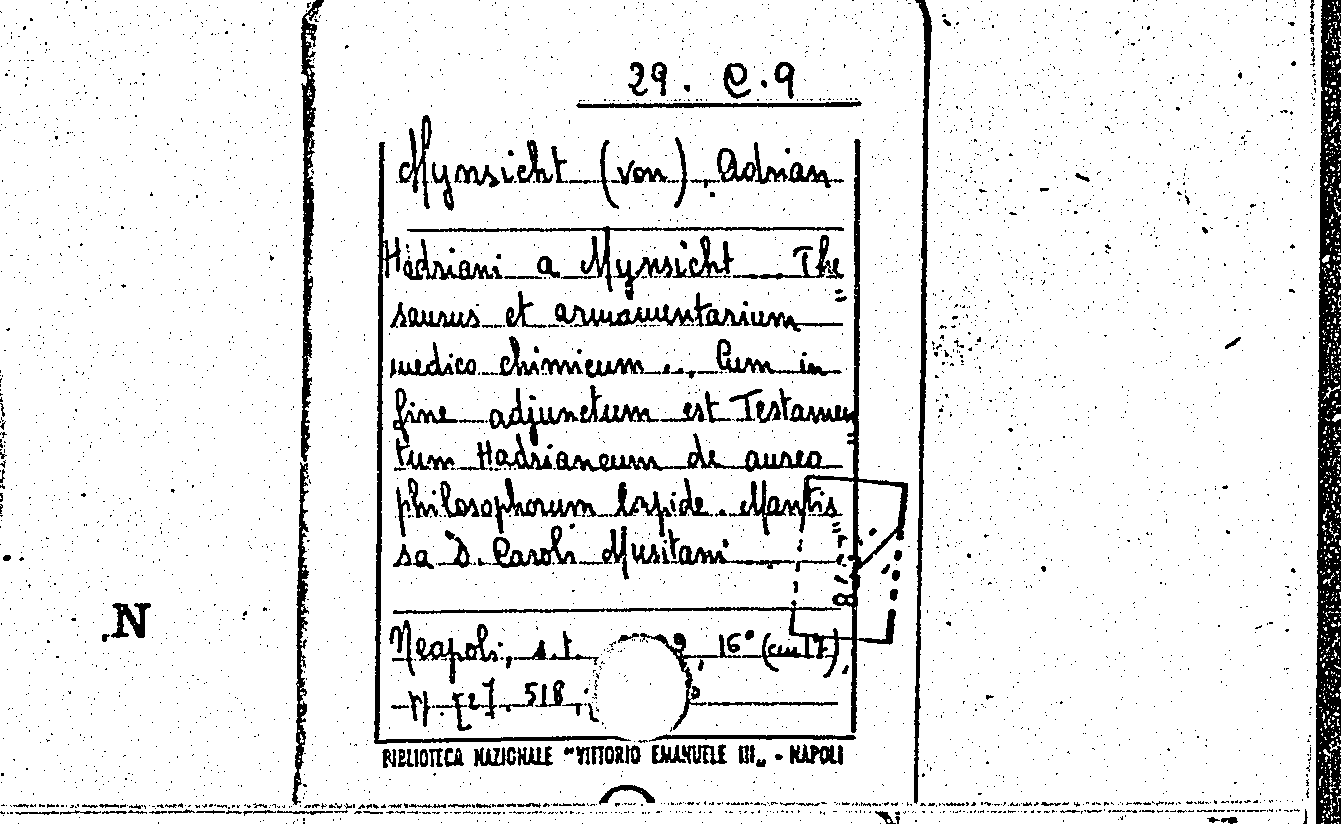 29. C.9
Mynsicht (von), Adrian
Hadriani a Mynsicht ... The
saurus et armamentarium
medico chimicum ... Cum in
fine adjunctum est Testamen
tum Hadrianeum de aureo
philosophorum lapide. Mantis
sa D. Caroli Musitani
N
Neapoli, s.t. 9, 16° (cm 17),
pp. [2]. 518,
BIBLIOTECA NAZIONALE "VITTORIO EMANUELE III„ - NAPOLI